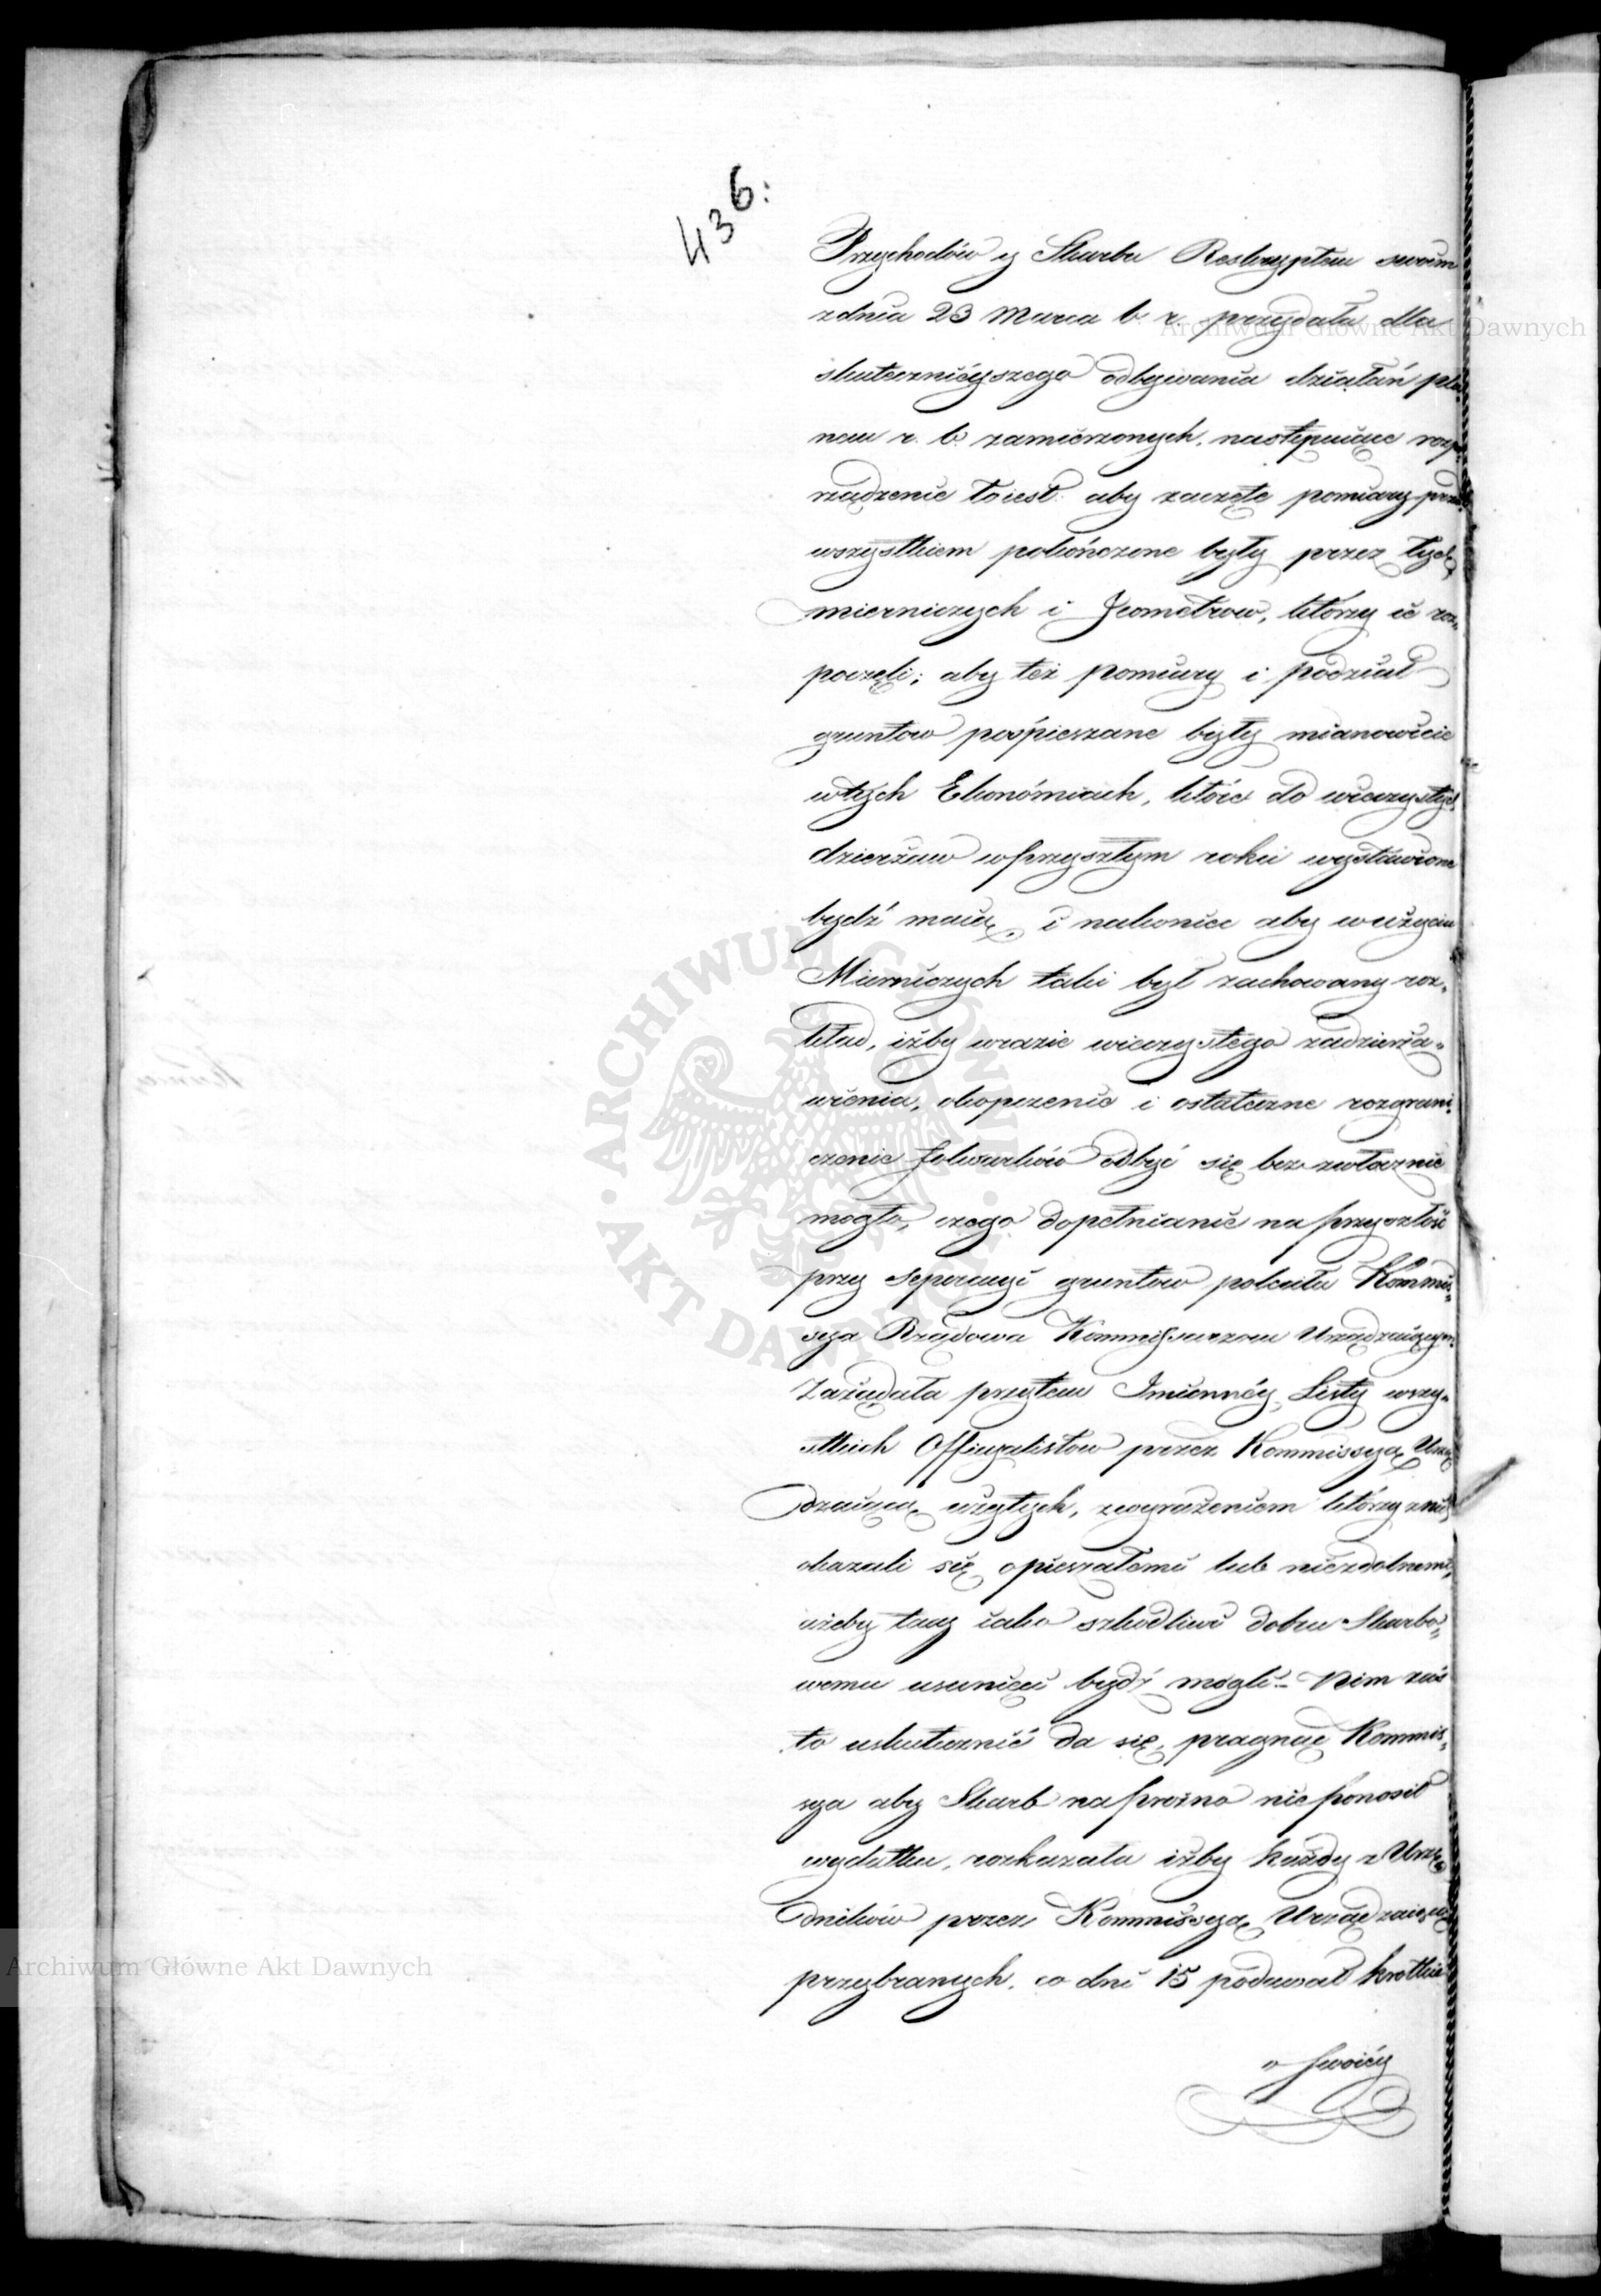 436:
Przychodów y Skarbu Reskryptem swoim
zdnia 23 Marca b. r. przydała dla
skutecznieyszego odbywania działań pla
nem r. b. zamierzonych, następuiące rozpo
rządzenie toiest: aby zaczęte pomiary przed
wszystkiem pokończone były przez tych
mierniczych i Jeometrow, którzy ie roz=
poczęli; aby też pomiary i podział
gruntow pośpieszane były mianowicie
wtych Ekonómiach, które do wieczystych
dzierżaw wprzyszłym roku wystawione
bydź maią, i nakoniec aby wużyciu
Mierniczych taki był zachowany roz=
kład, iżby wrazie wieczystego zadzierża=
wienia, okopczenie i ostateczne rozgrani=
czenie folwarków odbyć się bezzwłocznie
mogło, czego dopełnianie na przyszłość
przy Seperacyi gruntow poleciła Kommis=
sya Rządowa Kommissarzom Urządzaiącym.
Zażądała przytem Imienney Listy wszy=
stkich Officyalistow przez Kommissyą Urzą
dzaiącą użytych, zwyrażeniem którzy znich
okazali się opieszałemi lub niezdolnemi,
ażeby tacy iako szkodliwi dobru Skarbo=
wemu usunięci bydź mogli - Nim zaś
to uskutecznić da się, pragnąc Kommis=
sya aby Skarb na prożno nie ponosił
wydatku, rozkazała iżby każdy z Urzę
dników przez Kommissyą Urządzaiącą
przybranych, co dni 15 podawał krotkie
o swoiéy
Archiwum Główne Akt Dawnych
Archiwum Główne Akt Dawnych
· ARCHIWUM GŁÓWNE · AKT DAWNYCH